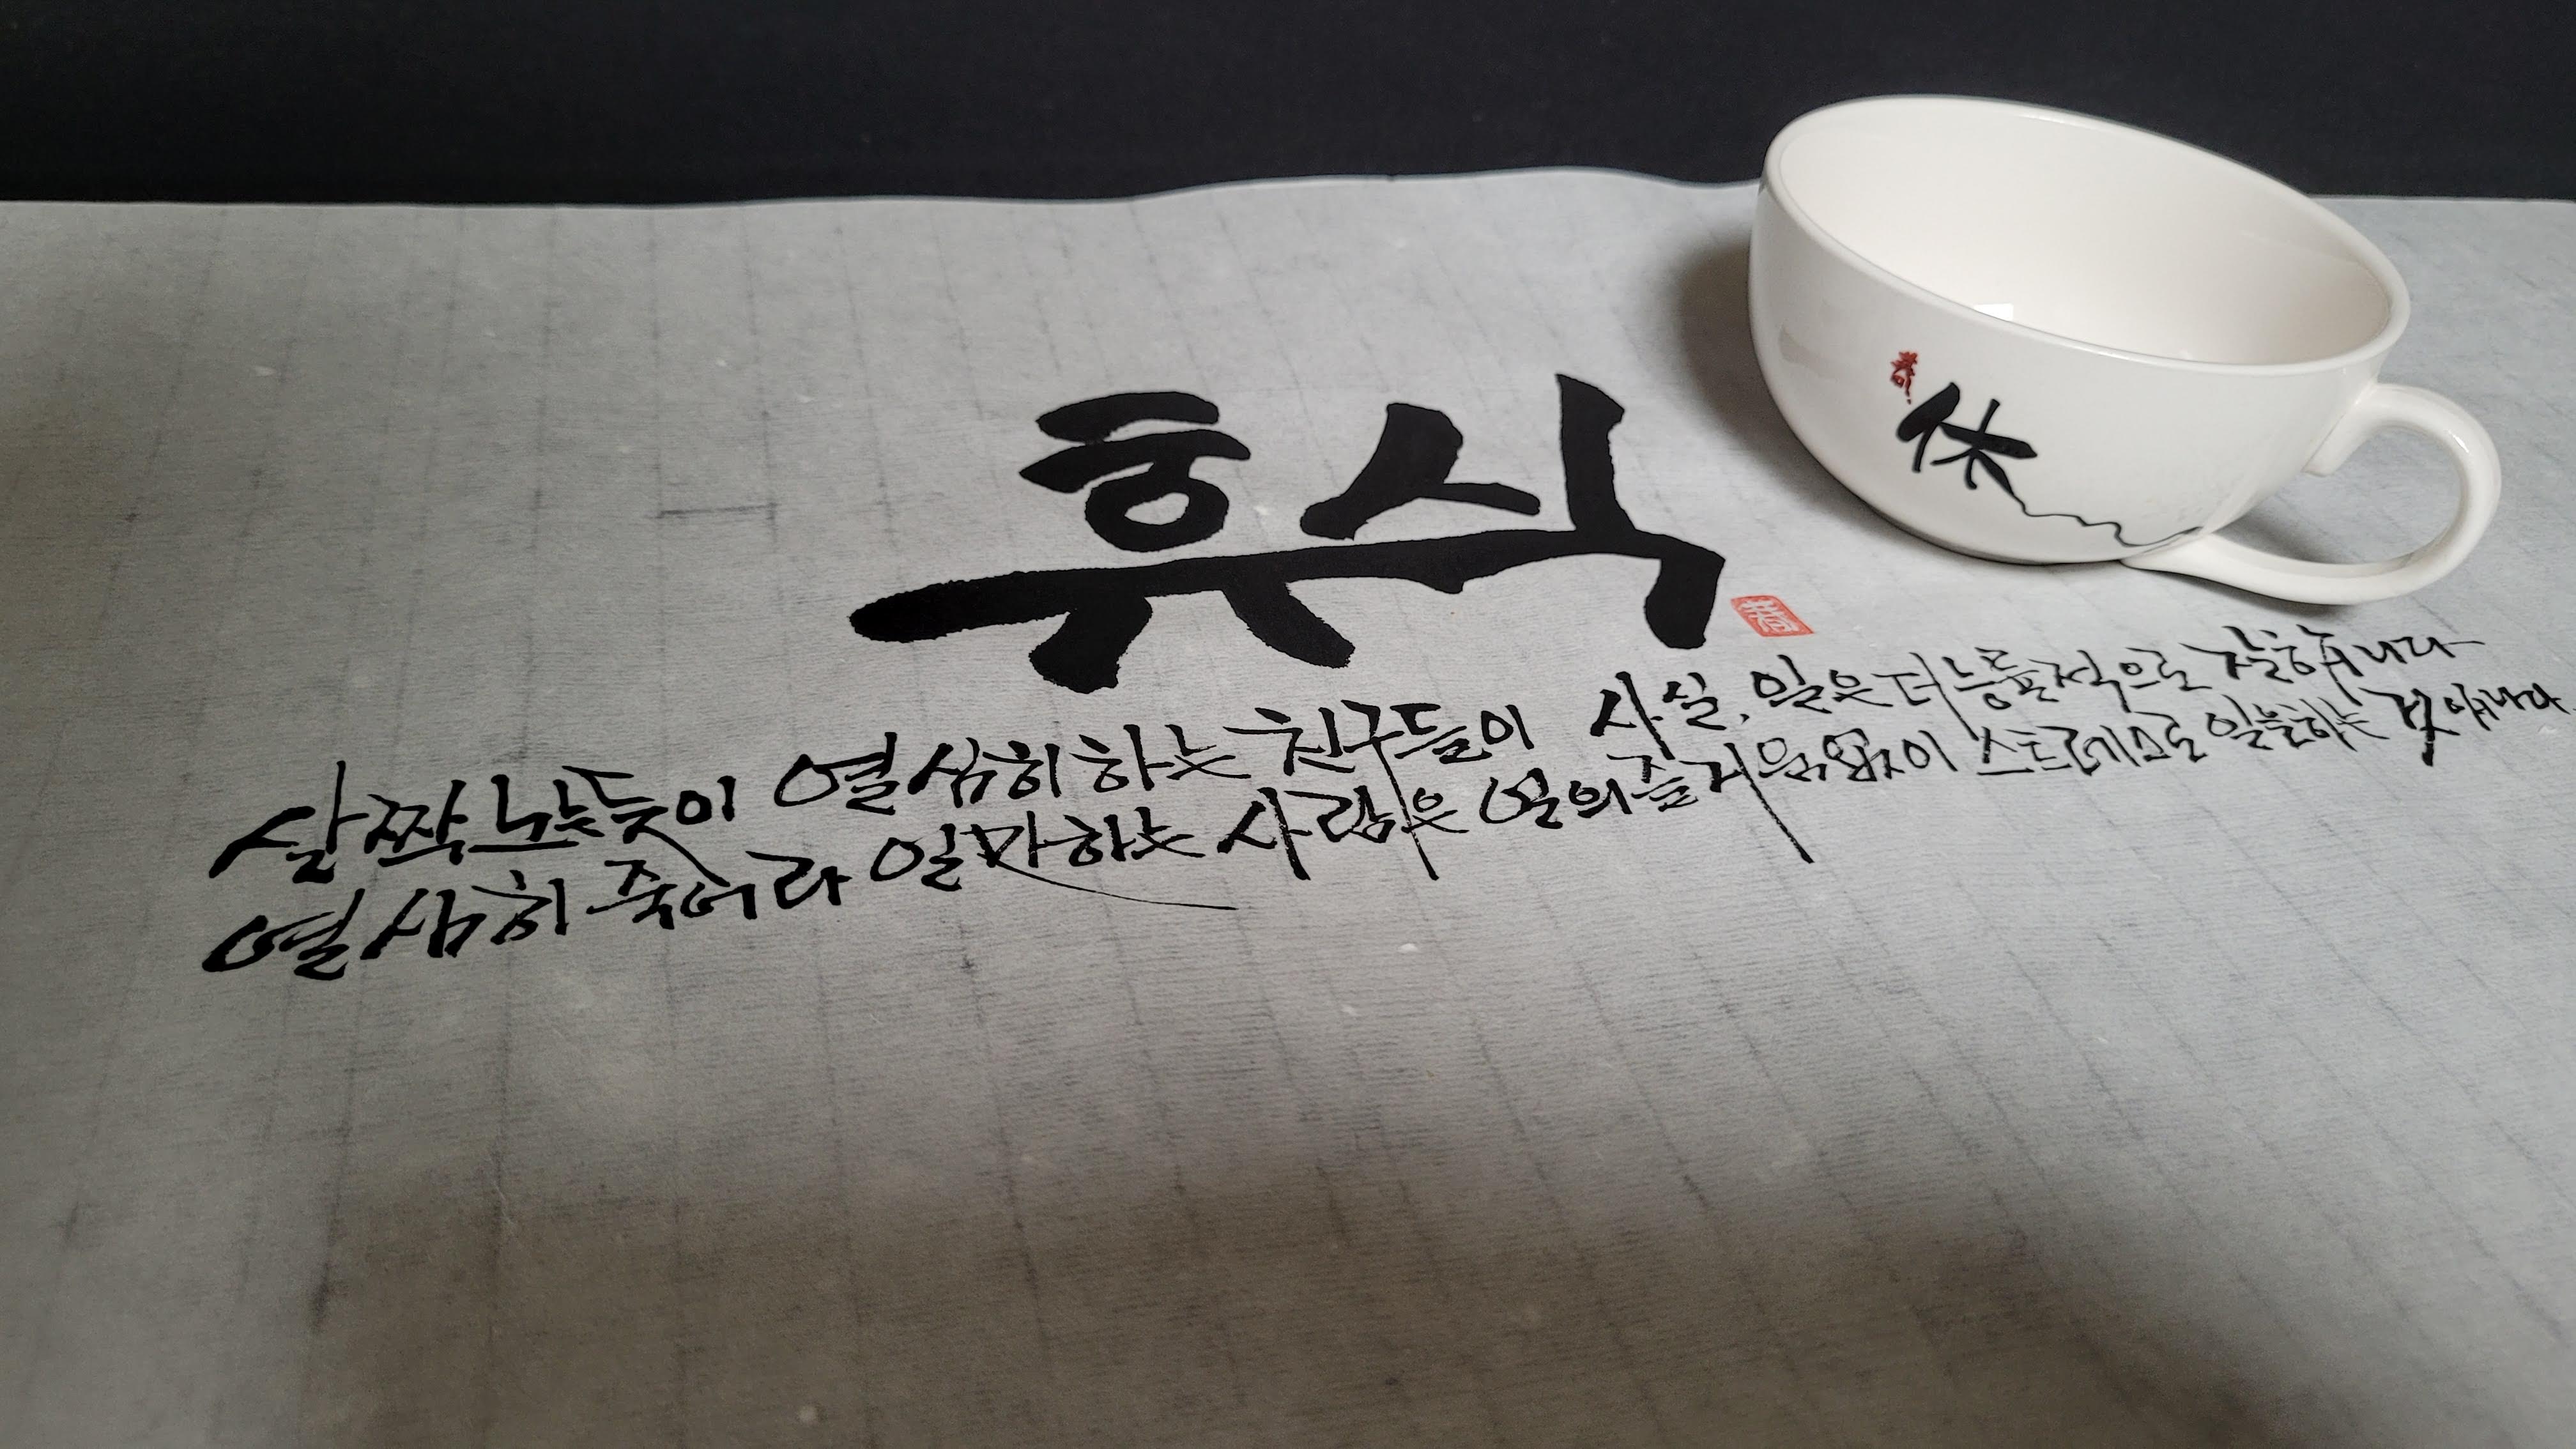 휴식
休
살짝 노는듯이 열심히 하는 친구들이 사실, 일은 더 능률적으로 잘합니다
열심히 죽어라 일만하는 사람은 일의 즐거움 없이 스트레스로 일을하는 것이니다